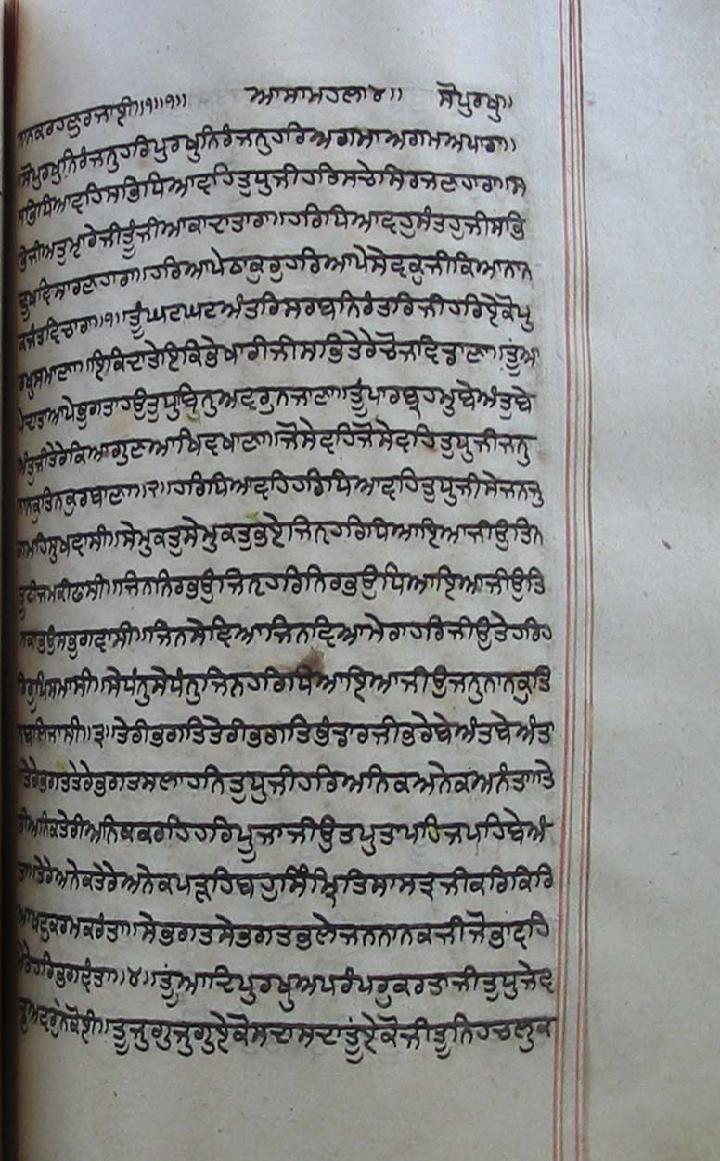 ਨਾਨਕਰਹਣੁਰਜਾਈ॥੧॥੧॥ ਆਸਾਮਹਲਾ੪॥ ਸੋਪੁਰਖੁ॥
ਸੋਪੁਰਖੁਨਿਰੰਜਨੁਹਰਿਪੁਰਖੁਨਿਰੰਜਨੁਹਰਿਅਗਮਾਅਗਮਅਪਾਰਾ॥
ਸਭਿਧਿਆਵਹਿਸਭਿਧਿਆਵਹਿਤੁਧੁਜੀਹਰਿਸਚੇਸਿਰਜਣਹਾਰਾ॥ਸ
ਭਿਜੀਅਤੁਮਾਰੇਜੀਤੂੰਜੀਆਕਾਦਾਤਾਰਾ॥ਹਰਿਧਿਆਵਹੁਸੰਤਹੁਜੀਸਭਿ
ਦੂਖਵਿਸਾਰਣਹਾਰਾ॥ਹਰਿਆਪੇਠਾਕੁਰੁਹਰਿਆਪੇਸੇਵਕੁਜੀਕਿਆਨਾਨ
ਕਜੰਤਵਿਚਾਰਾ॥੧॥ਤੂੰਘਟਘਟਅੰਤਰਿਸਰਬਨਿਰੰਤਰਿਜੀਹਰਿਏਕੋਪੁ
ਰਖੁਸਮਾਣਾ॥ਇਕਿਦਾਤੇਇਕਿਭੇਖਾਰੀਜੀਸਭਿਤੇਰੇਚੋਜਵਿਡਾਣਾ॥ਤੂੰਆ
ਪੇਦਾਤਾਆਪੇਭੁਗਤਾਹਉਤੁਧੁਬਿਨੁਅਵਰੁਨਜਾਣਾ॥ਤੂੰਪਾਰਬ੍ਰਹਮੁਬੇਅੰਤੁਬੇ
ਅੰਤੁਜੀਤੇਰੇਕਿਆਗੁਣਆਖਿਵਖਾਣਾ॥ਜੋਸੇਵਹਿਜੋਸੇਵਹਿਤੁਧੁਜੀਜਨੁ
ਨਾਨਕੁਤਿਨਕੁਰਬਾਣਾ॥੨॥ਹਰਿਧਿਆਵਹਿਹਰਿਧਿਆਵਹਿਤੁਧੁਜੀਸੇਜਨਜੁ
ਗਮਹਿਸੁਖਵਾਸੀ॥ਸੇਮੁਕਤੁਸੇਮੁਕਤੁਭਏਜਿਨ੍ਹਰਿਧਿਆਇਆਜੀਉਤਿਨ
ਤੂਟੀਜਮਕੀਫਾਸੀ॥ਜਿਨਨਿਰਭਉਜਿਨ੍ਹਰਿਨਿਰਭਉਧਿਆਇਆਜੀਉਤਿ
ਨਕਾਭਉਸਭੁਗਵਾਸੀ॥ਜਿਨਸੇਵਿਆਜਿਨਵਿਆਮੇਰਾਹਰਿਜੀਉਤੇਹਰਿਹ
ਰਿਰੂਪਿਸਮਾਸੀ॥ਸੇਧੰਨੁਸੇਧੰਨੁਜਿਨਹਰਿਧਿਆਇਆਜੀਉਜਨੁਨਾਨਕੁਤਿ
ਨਬਲਿਜਾਸੀ॥੩॥ਤੇਰੀਭਗਤਿਤੇਰੀਭਗਤਿਭੰਡਾਰਜੀਭਰੇਬੇਅੰਤਬੇਅੰਤ
ਤੇਰੇਭਗਤਤੇਰੇਭਗਤਸਲਾਹਨਿਤੁਧੁਜੀਹਰਿਅਨਿਕਅਨੇਕਅਨੰਤਾ॥ਤੇ
ਰੀਅਨਿਕਤੇਰੀਅਨਿਕਕਰਹਿਹਰਿਪੂਜਾਜੀਉਤਪੁਤਾਪਹਿਜਪਹਿਬੇਅੰ
ਤਾ॥ਤੇਰੇਅਨੇਕਤੇਰੇਅਨੇਕਪੜਹਿਬਹੁਸਿੰਮ੍ਰਿਤਿਸਾਸਤ੍ਰਜੀਕਰਿਕਿਰਿ
ਆਖਟੁਕਰਮਕਰੰਤਾ॥ਸੇਭਗਤਸੇਭਗਤਭਲੇਜਨਨਾਨਕਜੀਜੋਭਾਵਹਿ
ਮੇਰੇਹਰਿਭਗਵੰਤਾ॥੪॥ਤੂੰਆਦਿਪੁਰਖੁਅਪਰੰਪਰੁਕਰਤਾਜੀਤੁਧੁਜੇਵ
ਡੁਅਵਰੁਨਕੋਈ॥ਤੂਜੁਗੁਜੁਗੁਏਕੋਸਦਾਸਦਾਤੂੰਏਕੋਜੀਤੂਨਿਹਚਲੁਕ